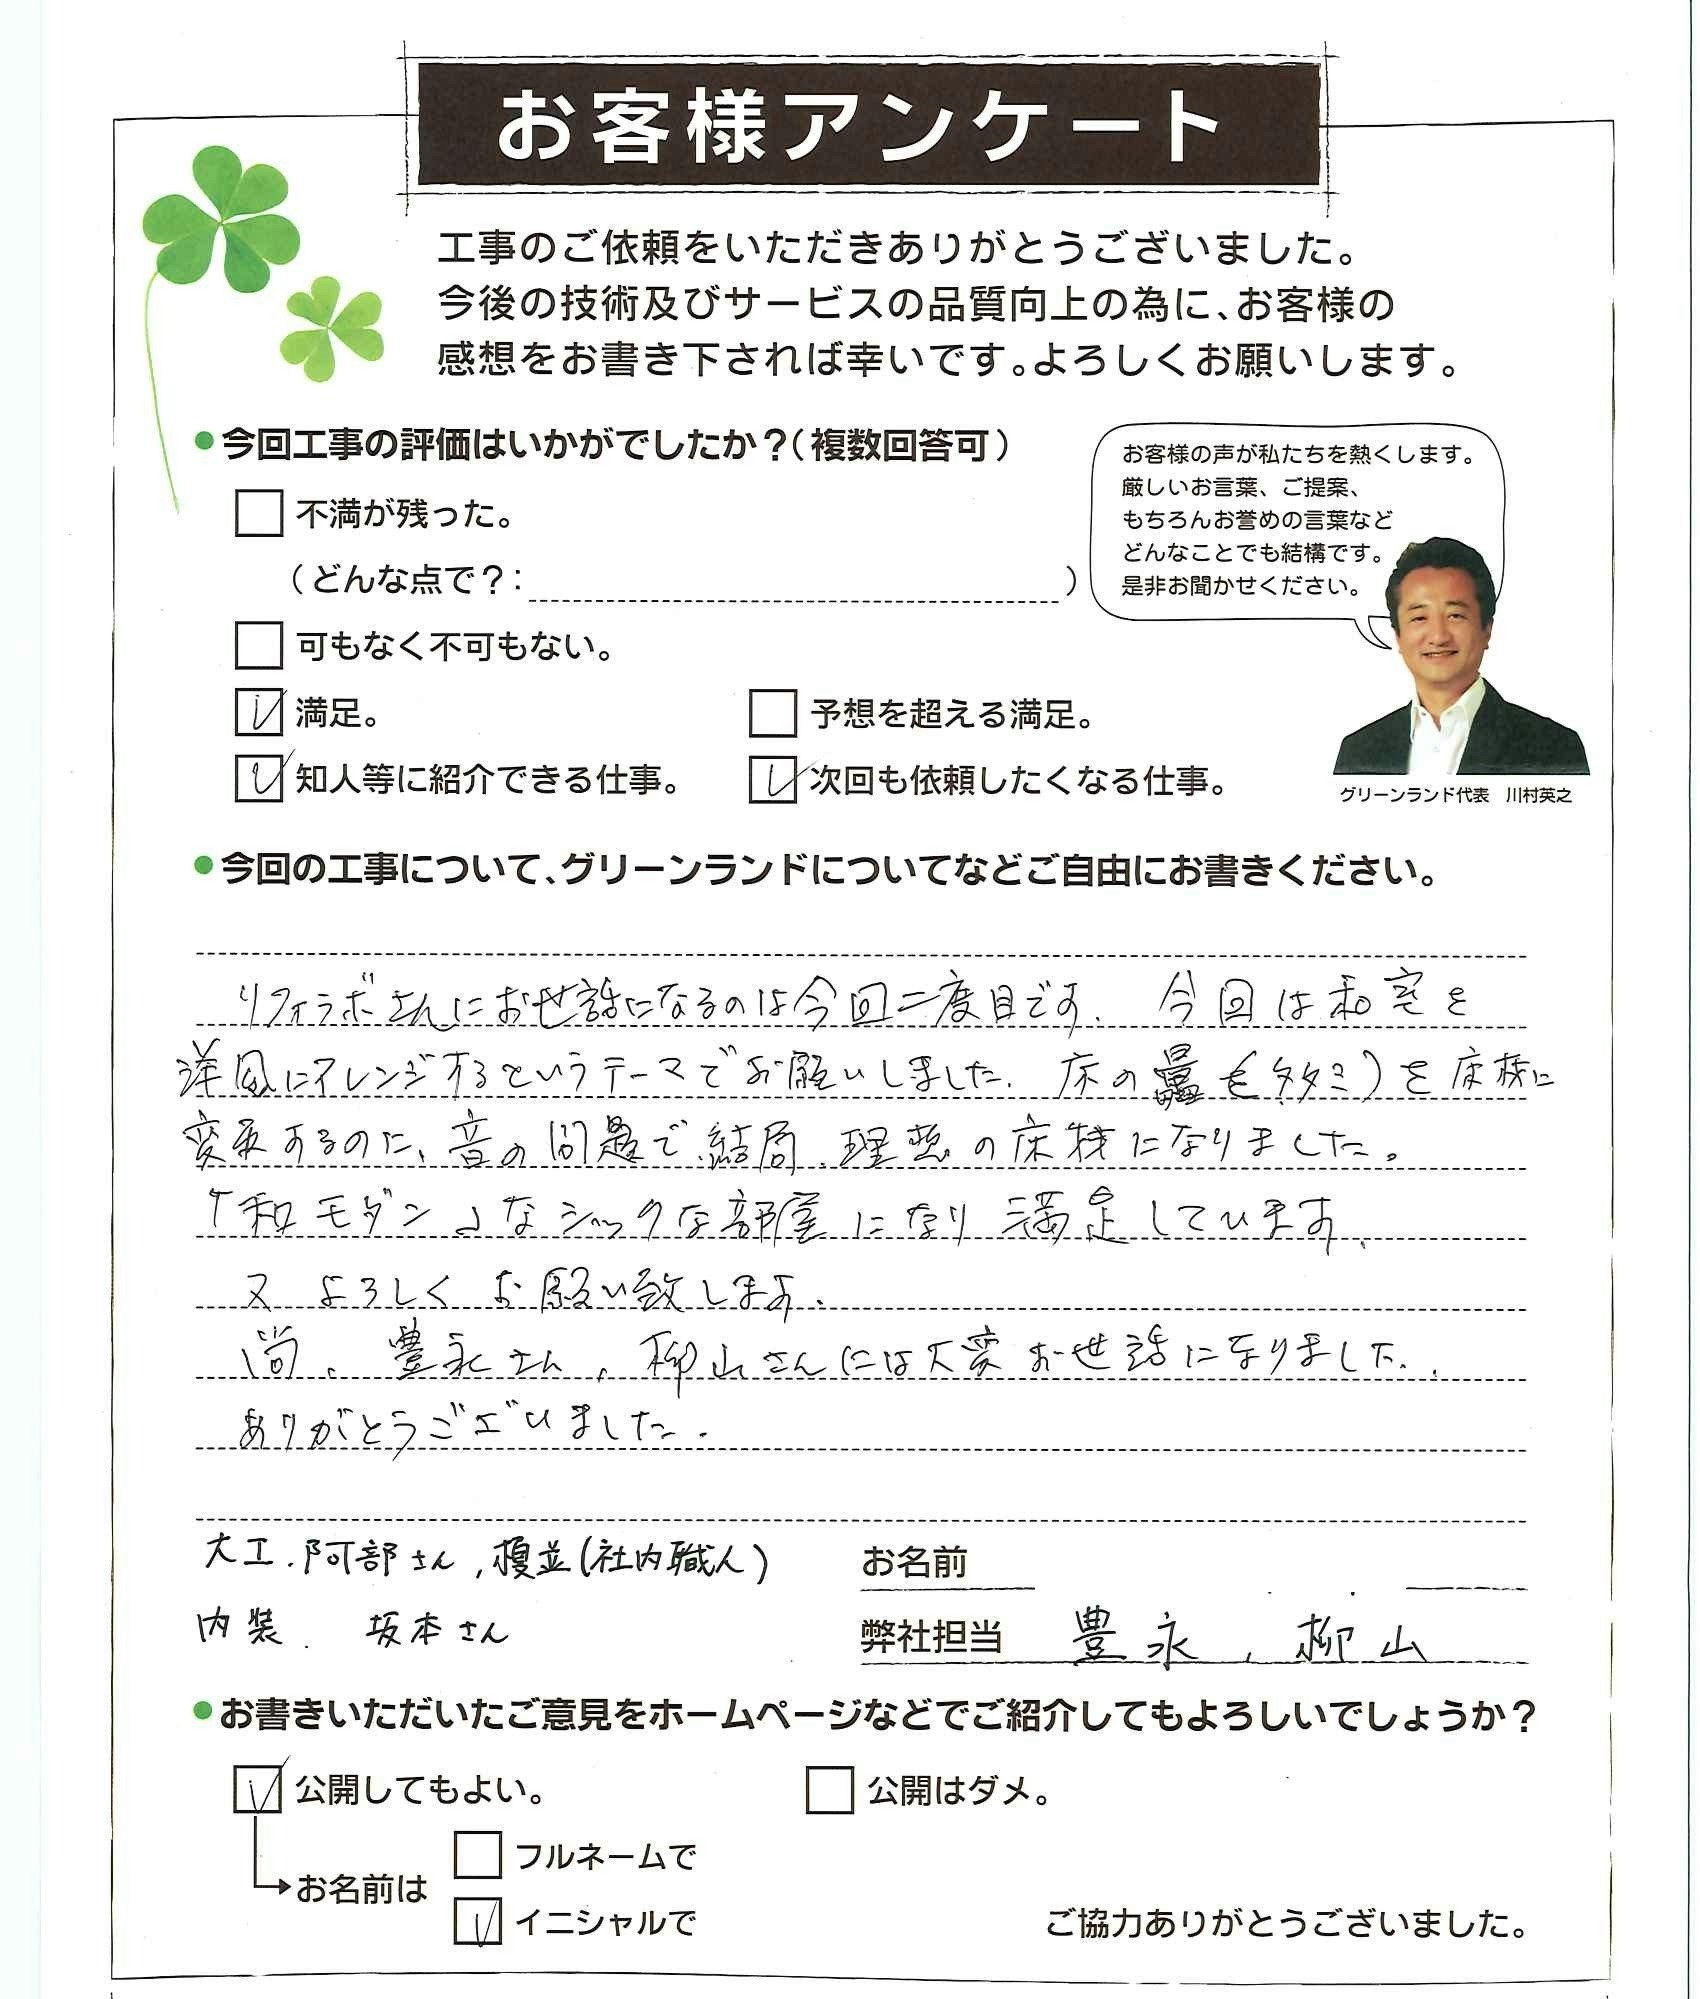 お客様アンケート
工事のご依頼をいただきありがとうございました。
今後の技術及びサービスの品質向上の為に、お客様の
感想をお書き下されば幸いです。よろしくお願いします。
●今回工事の評価はいかがでしたか？（複数回答可）
不満が残った。
（どんな点で？：　）
可もなく不可もない。
満足。
予想を超える満足。
知人等に紹介できる仕事。
次回も依頼したくなる仕事。
お客様の声が私たちを熱くします。
厳しいお言葉、ご提案、
もちろんお誉めの言葉など
どんなことでも結構です。
是非お聞かせください。
グリーンランド代表　川村英之
●今回の工事について、グリーンランドについてなどご自由にお書きください。
リフォラボさんにお世話になるのは今回二度目です. 今回は和室を
洋風にアレンジするというテーマでお願いしました. 床の (タタミ)を床材に
変更するのに、音の問題で、結局、理想の床材になりました。
「和モダン」なシックな部屋になり満足しています.
又 よろしく お願い致します.
尚、豊永さん、柳山さんには大変お世話になりました.
ありがとうございました.
大工.阿部さん,榎並(社内職人)
内装. 坂本さん
お名前
弊社担当 豊永, 柳山
●お書きいただいたご意見をホームページなどでご紹介してもよろしいでしょうか？
公開してもよい。
公開はダメ。
お名前は
フルネームで
イニシャルで
ご協力ありがとうございました。